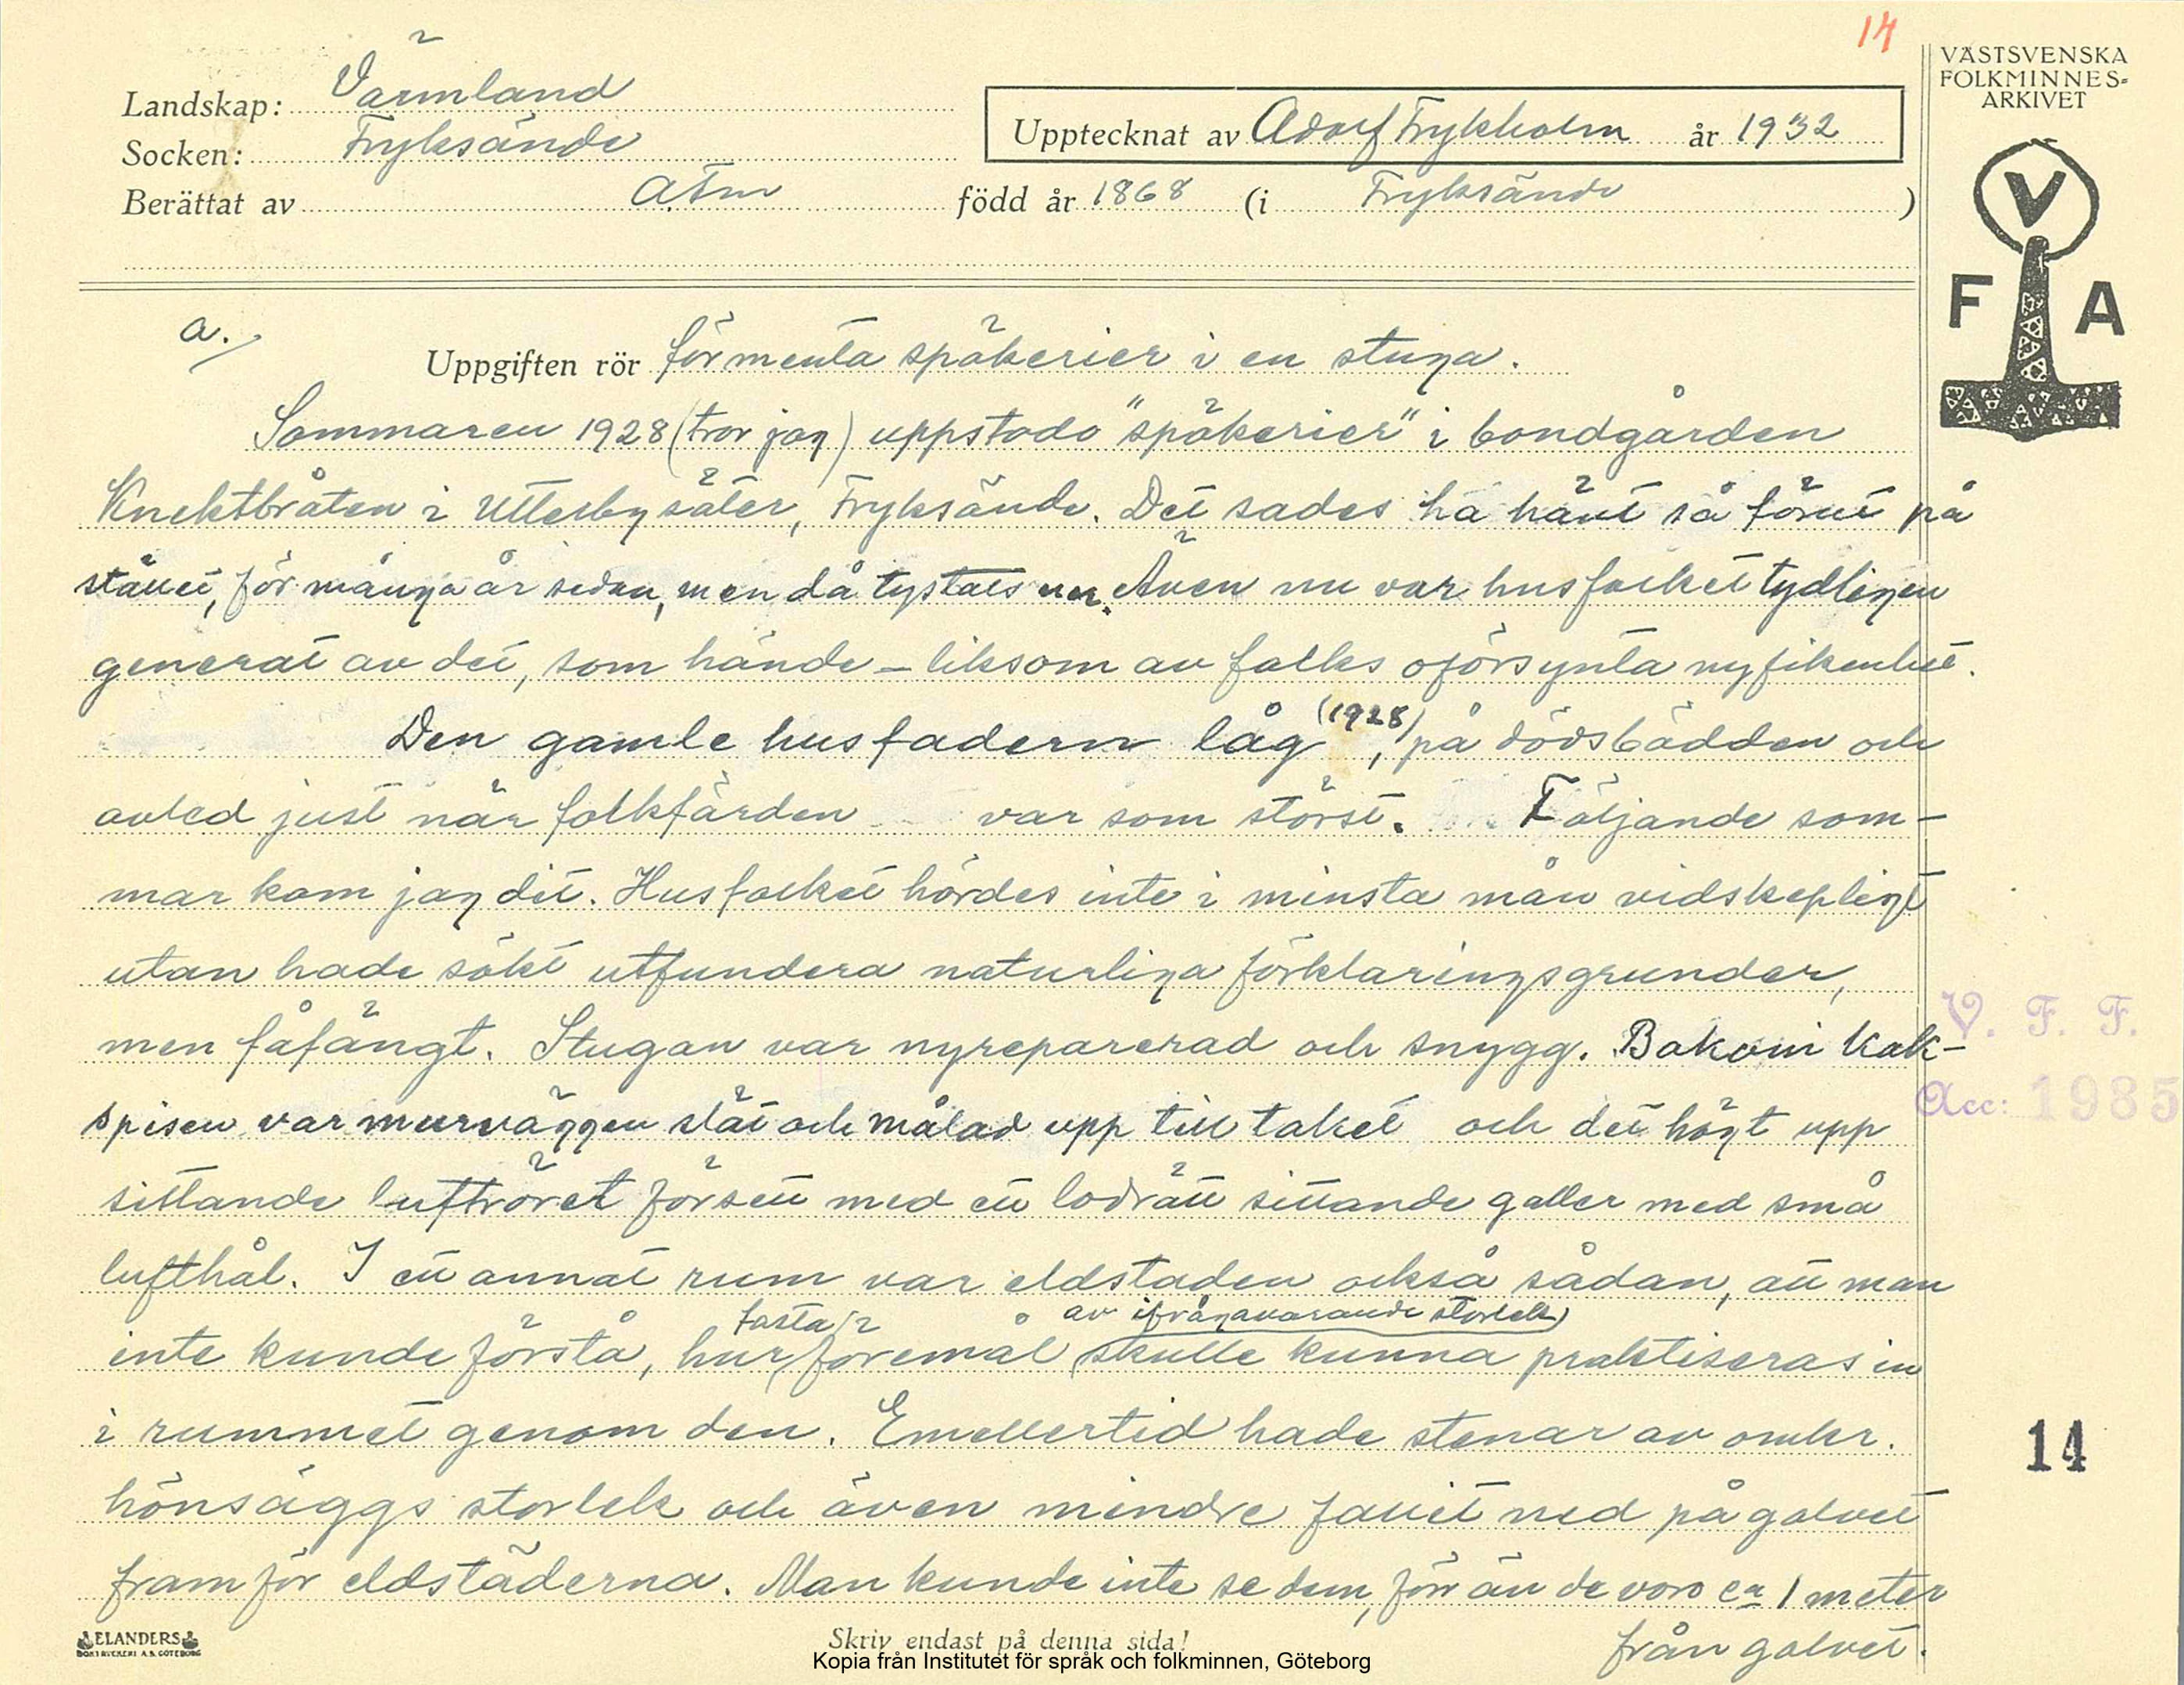 14
VÄSTSVENSKA
FOLKMINNES-
ARKIVET
Landskap: Värmland
Socken: Fryksände
Upptecknat av Adolf Frykholm år 1932
Berättat av född år 1868 (i Fryksände )
V
F A
a.
Uppgiften rör förmenta spökerier i en stuga.
Sommaren 1928 (tror jag) uppstodo "spökerier" i bondgården
Knektbråten i Utterbysäter, Fryksände. Det sades ha hänt så förut på
stället, för många år sedan, men då tystats ner. Även nu var husfolket tydligen
generat av det, som hände – liksom av folks oförsynta nyfikenhet.
Den gamle husfadern låg (1928), på dödsbädden och
avled just när folkfärden var som störst. Följande som-
mar kom jag dit. Husfolket hördes inte i minsta mån vidskepligt
utan hade sökt utfundera naturliga förklaringsgrunder,
men fåfängt. Stugan var nyreparerad och snygg. Bakom kak-
spisen var murväggen slät och målad upp till taket och det högt upp
sittande luftröret försett med ett lodrätt sittande galler med små
lufthål. I ett annat rum var eldstaden också sådan, att man
fasta av ifrågavarande storlek
inte kunde förstå, hur föremål skulle kunna praktiseras in
i rummet genom den. Emellertid hade stenar av omkr.
hönsäggs storlek och även mindre fallit ned på golvet
framför eldstäderna. Man kunde inte se dem, förr än de voro ca 1 meter
från golvet.
V. F. F.
Acc: 1985
14
ELANDERS
BOKTRYCKERI A.B. GÖTEBORG
Skriv endast på denna sida!
Kopia från Institutet för språk och folkminnen, Göteborg